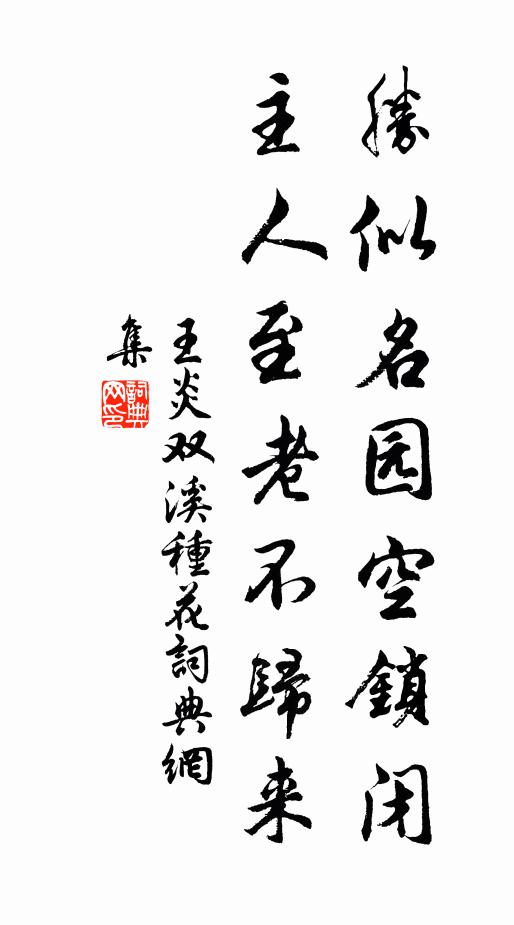 勝似名园空鎖闭
主人至老不歸来
王炎双溪種花詞典網
集
詞典网印